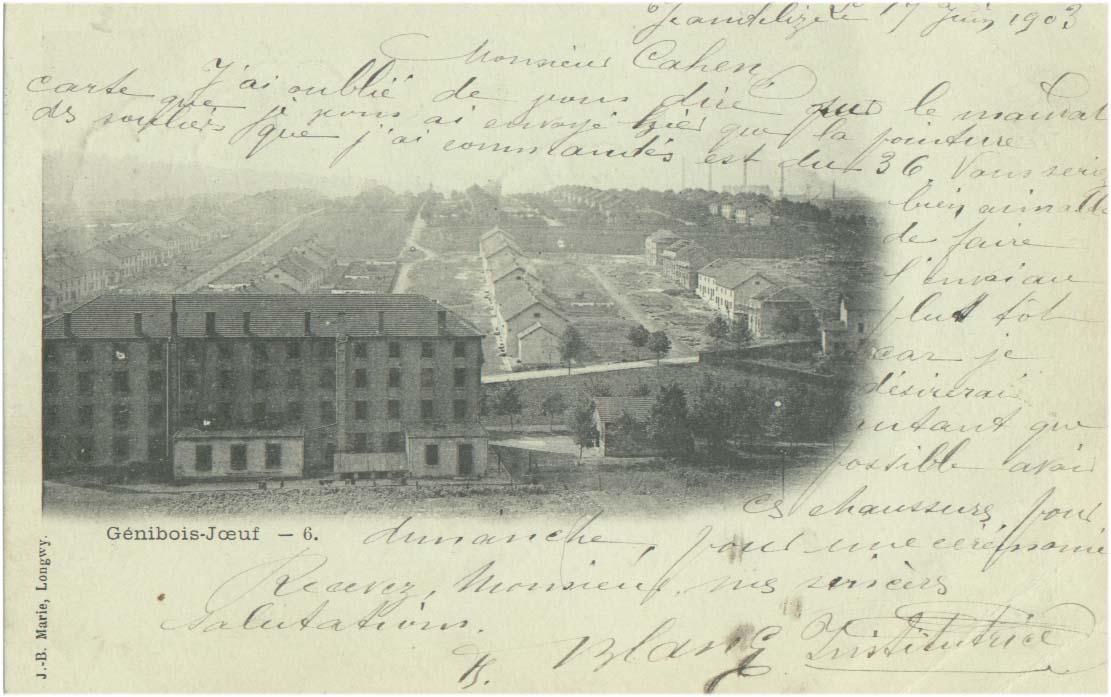 Jeandelize le 17 Juin 1903
Monsieur Cahen
J'ai oublié de vous dire sur le mandat
carte que je vous ai envoyé hier que la pointure
des souliers que j'ai commandés est du 36. Vous seriez
bien aimable
de faire
l'envoi au
plut tôt
car je
désirerai
autant que
possible avoir
ces chaussures pour
dimanche, pour une cérémonie
Recevez, Monsieur, mes sincères
salutations.
Blang Institutrice
Génibois-Jœuf — 6.
J.-B. Marie, Longwy.